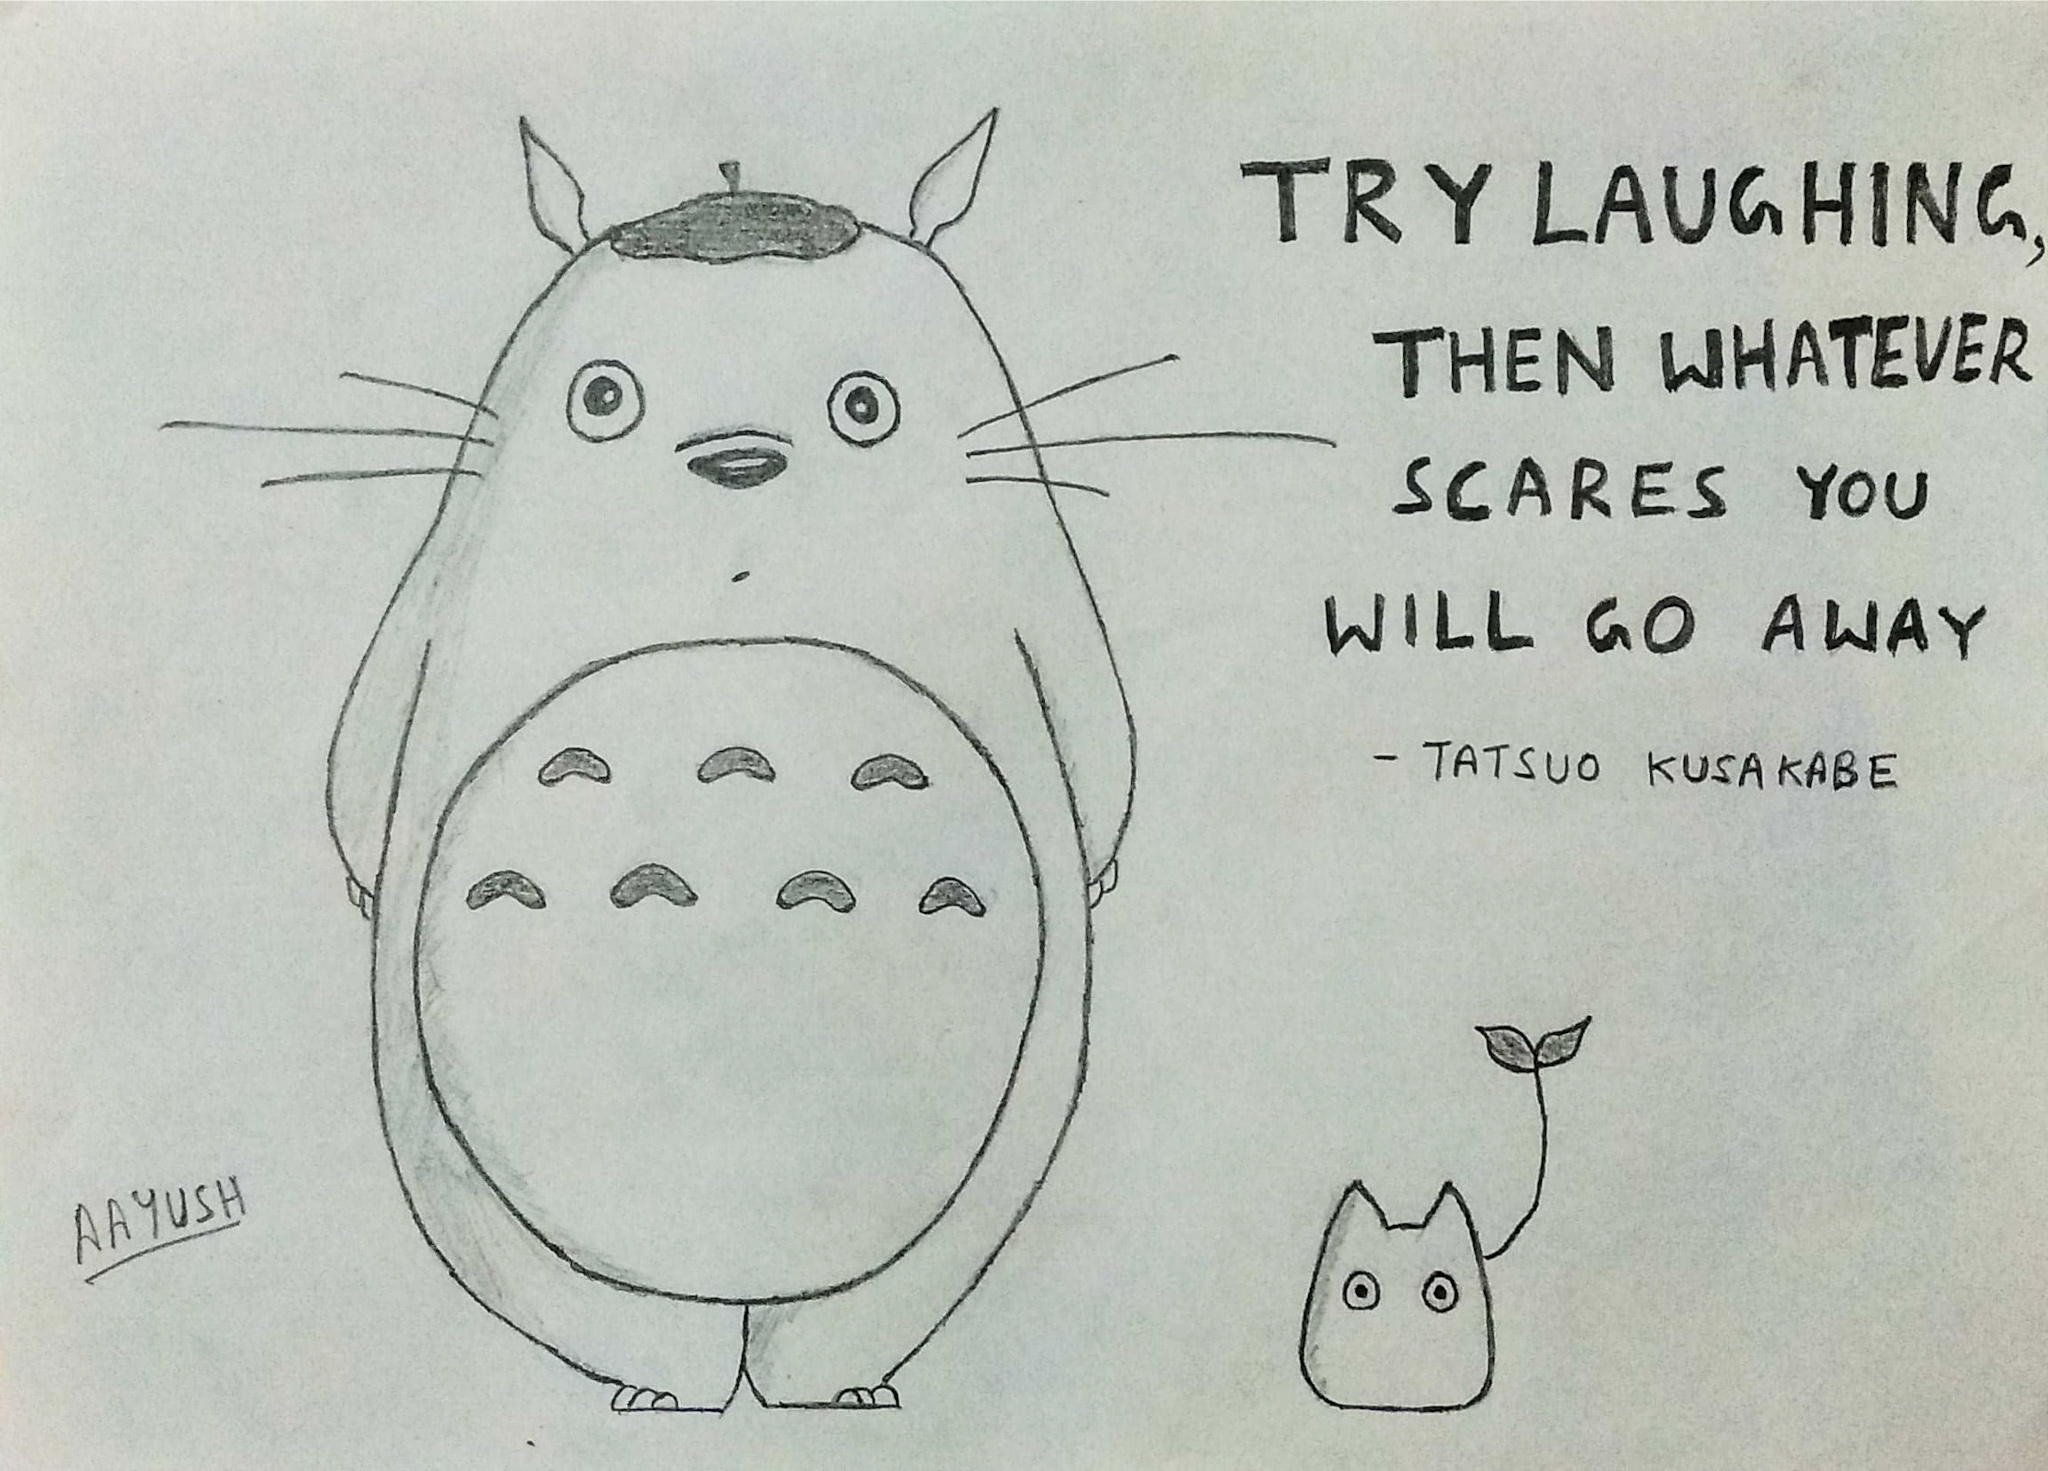 TRY LAUGHING,
THEN WHATEVER
SCARES YOU
WILL GO AWAY
- TATSUO KUSAKABE
AAYUSH